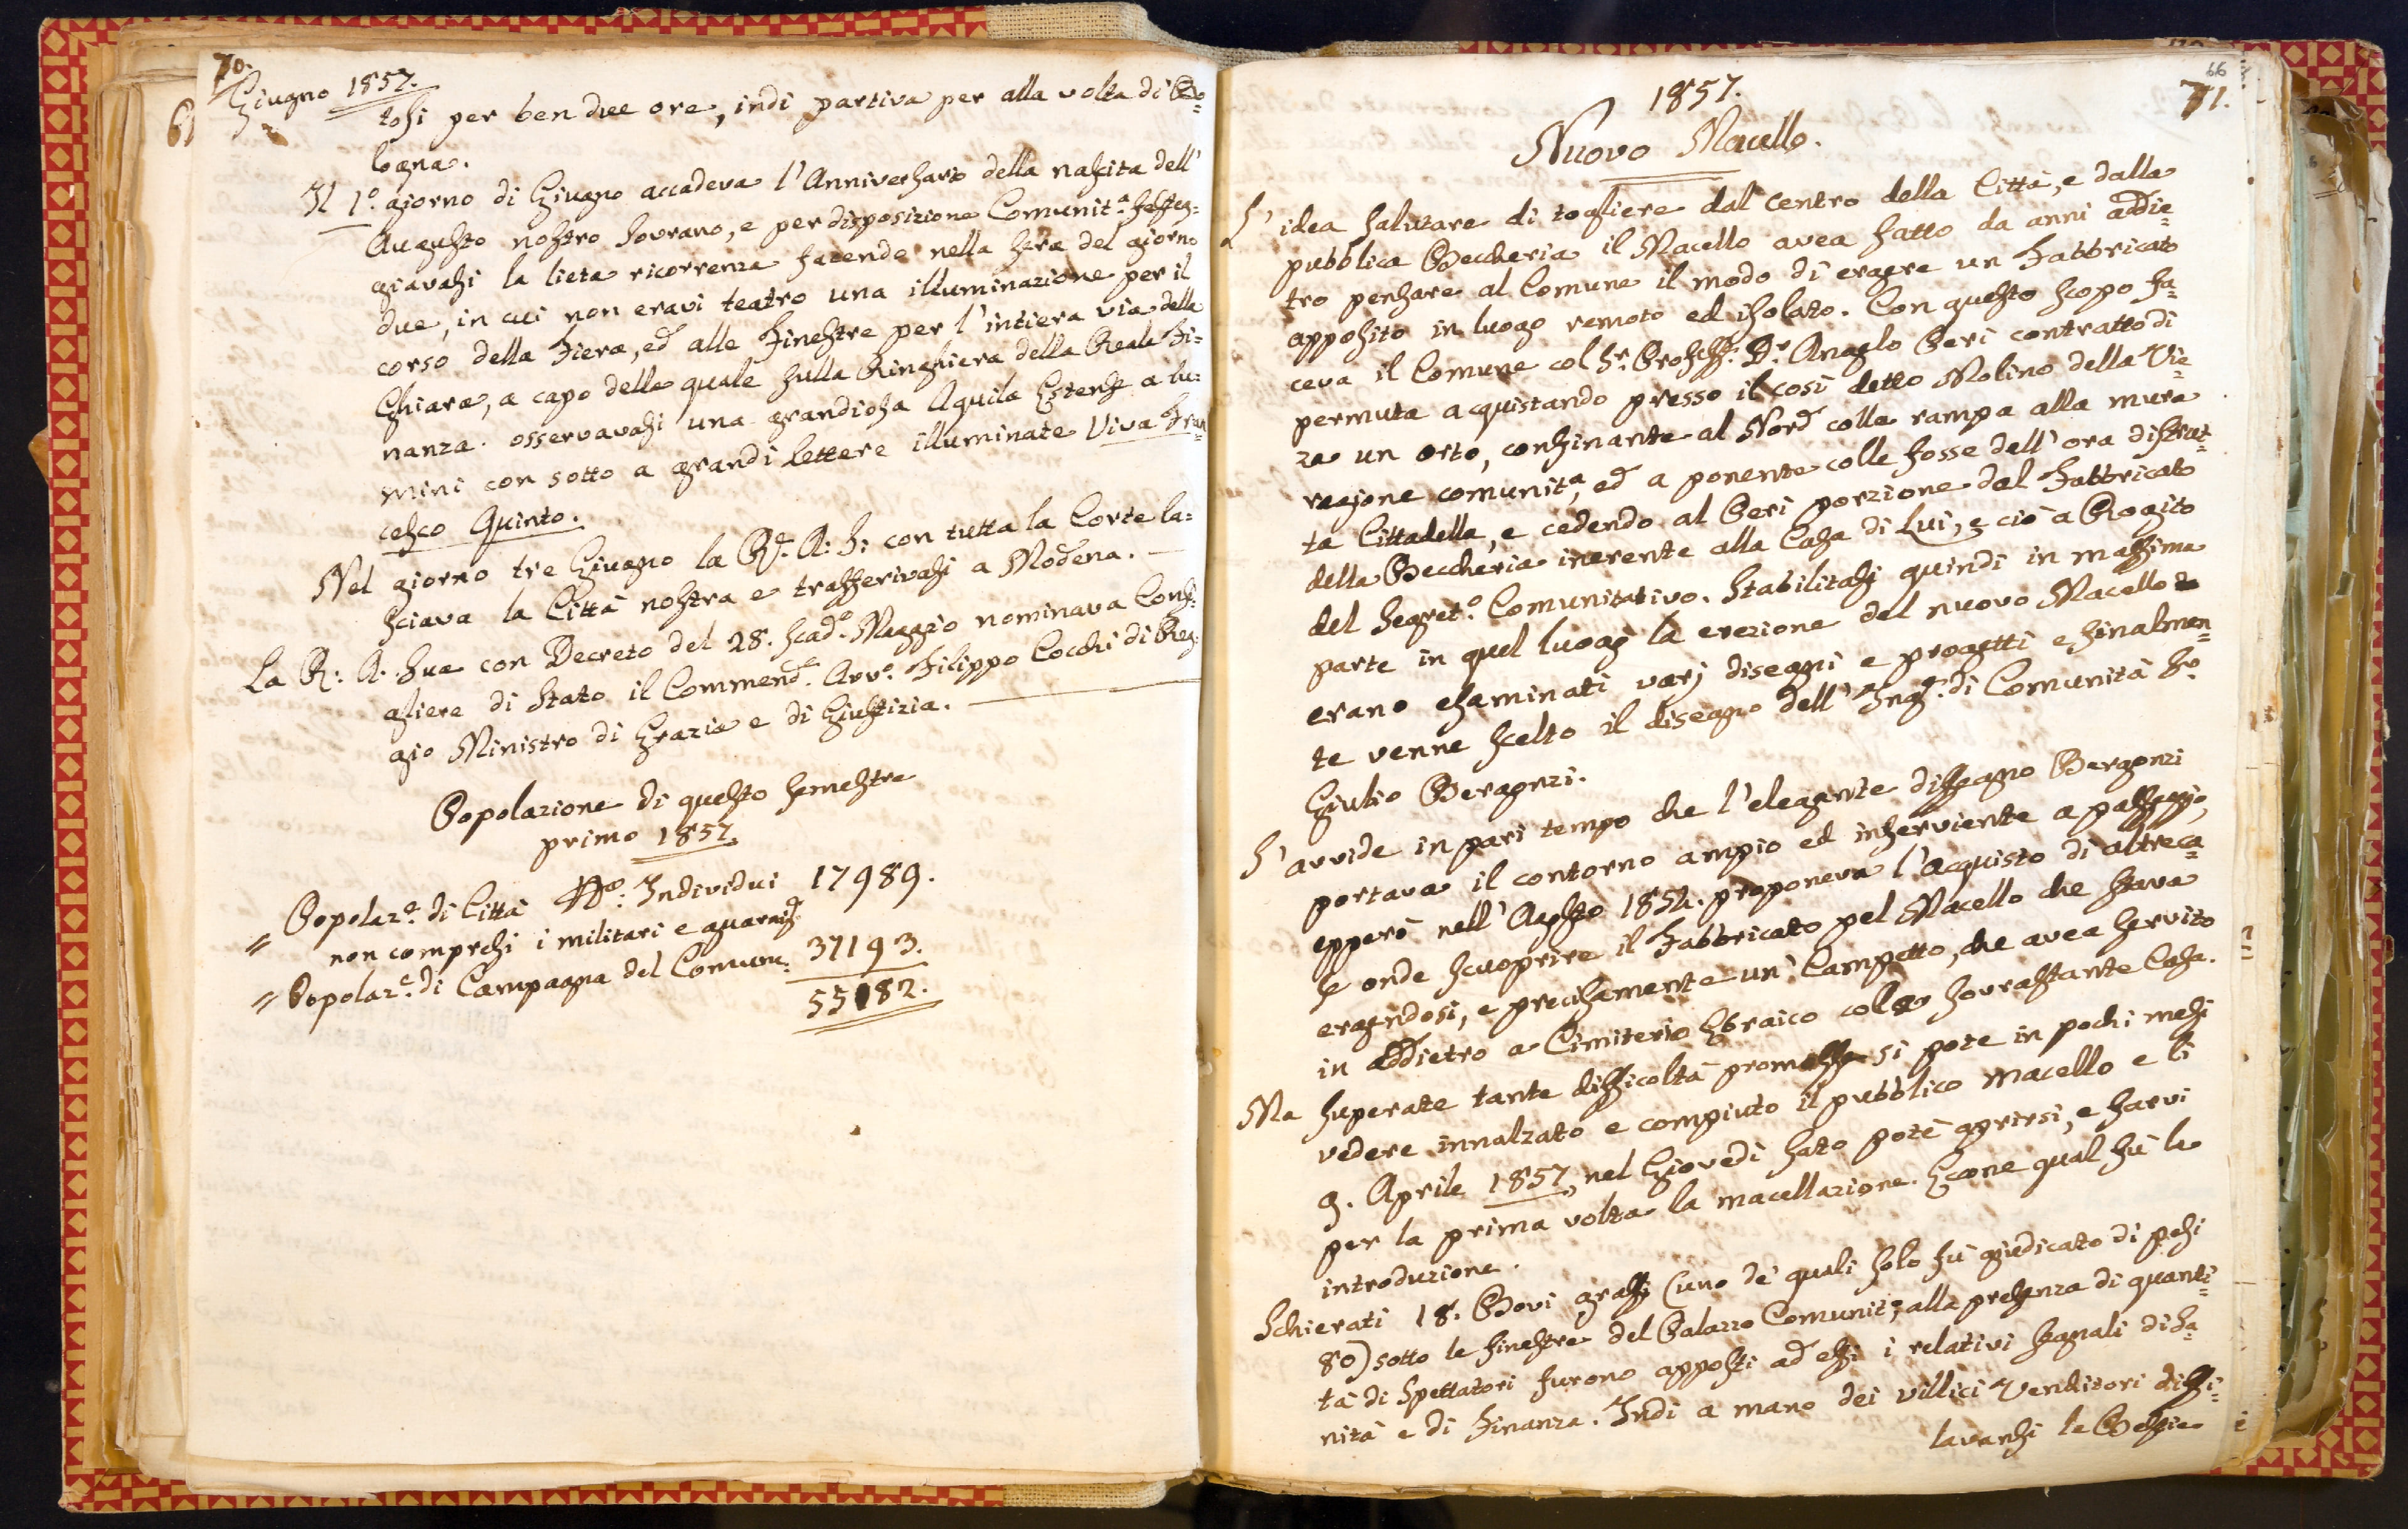 70.
Giugno 1857.
tosi per ben due ore, indi partiva per alla volta di Bo=
logna.
Il 1.º giorno di Giugno accadeva l'Anniversario della nascita dell'
Augusto nostro Sovrano, e per disposizione Comunit.ª festeg=
giavasi la lieta ricorrenza facendo nella sera del giorno
due, in cui non eravi teatro una illuminazione per il
corso della Fiera, ed alle Finestre per l'intiera via della
Ghiara, a capo della quale sulla Ringhiera della Reale Fi=
nanza. osservavasi una grandiosa Aquila Estense a lu=
mini con sotto a grandi lettere illuminate Viva Fran=
cesco Quinto.
Nel giorno tre Giugno la R. A. S. con tutta la Corte la=
sciava la Città nostra e trasferivasi a Modena.
La R. A. Sua con Decreto del 28. scad.º Maggio nominava Consi=
gliere di Stato il Commend.r Avv.º Filippo Cocchi di Reg=
gio Ministro di Grazia e di Giustizia.
Popolazione di questo semestre
primo 1857.
" Popolaz.e di Città N.º Individui 17989.
non compresi i militari e guarnig.
" Popolaz.e di Campagna del Comune. 37193.
55182.
66
71.
1857.
Nuovo Macello.
L'idea salutare di togliere dal centro della Città, e dalla
pubblica Beccheria il Macello avea fatto da anni addie=
tro pensare al Comune il modo di ergere un Fabbricato
apposito in luogo remoto ed isolato. Con questo scopo fa=
ceva il Comune col S.r Profess. D.r Angelo Peri contratto di
permuta acquistando presso il così detto Molino della Vie=
za un orto, confinante al Nord colle rampa alla mura
ragione comunit.ª, ed a ponente colle fosse dell'ora distrut=
ta Cittadella, e cedendo al Peri porzione del Fabbricato
della Beccheria inerente alla Casa di Lui, e ciò a Rogito
del Segret.º Comunitativo. Stabilitasi quindi in massima
parte in quel luogo la erezione del nuovo Macello
erano esaminati varj disegni e progetti e finalmen=
te venne scelto il disegno dell'Ing.r di Comunità S.r
Giulio Bergonzi.
S'avvide in pari tempo che l'elegante dissegno Bergonzi
portava il contorno ampio ed inserviente a passeggio,
epperò nell'Agosto 1854. proponeva l'acquisto di altre ca=
se onde scuoprire il Fabbricato pel Macello che stava
ergendosi, e precisamente un Campetto, che avea servito
in addietro a Cimiterio Ebraico colla sovrastante Casa.
Ma superate tante difficoltà promosse si potè in pochi mesi
vedere innalzato e compiuto il pubblico macello e li
9. Aprile 1857, nel Giovedì sato potè aprirsi, e farvi
per la prima volta la macellazione. Eccone qual fù la
introduzione.
Schierati 18. Bovi grassi (uno de' quali solo fù giudicato di pesi
80) sotto le finestre del Palazzo Comunit.º, alla presenza di quanti=
tà di Spettatori furono apposti ad essi i relativi segnali di Sa=
nità e di Finanza. Indi a mano dei villici Venditori diffi=
lavansi le Bestie